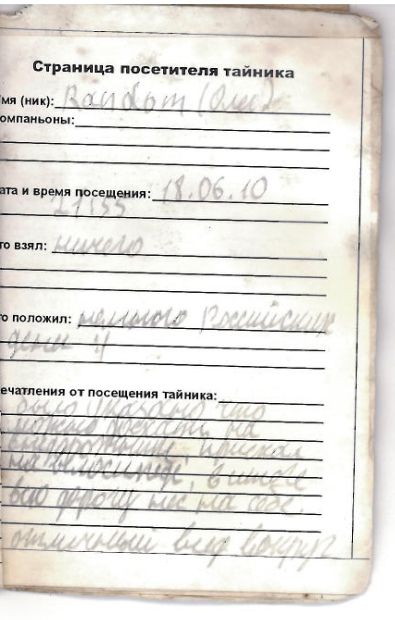 Страница посетителя тайника
мя (ник): Random (Олег)
омпаньоны:
ата и время посещения: 18.06.10
21:55
то взял: ничего
то положил: немного Российских
денег
ечатления от посещения тайника:
было указано что
можно доехать на
приехал
на велосипеде, в итоге
всю дорогу нес на себе.
отличный вид вокруг